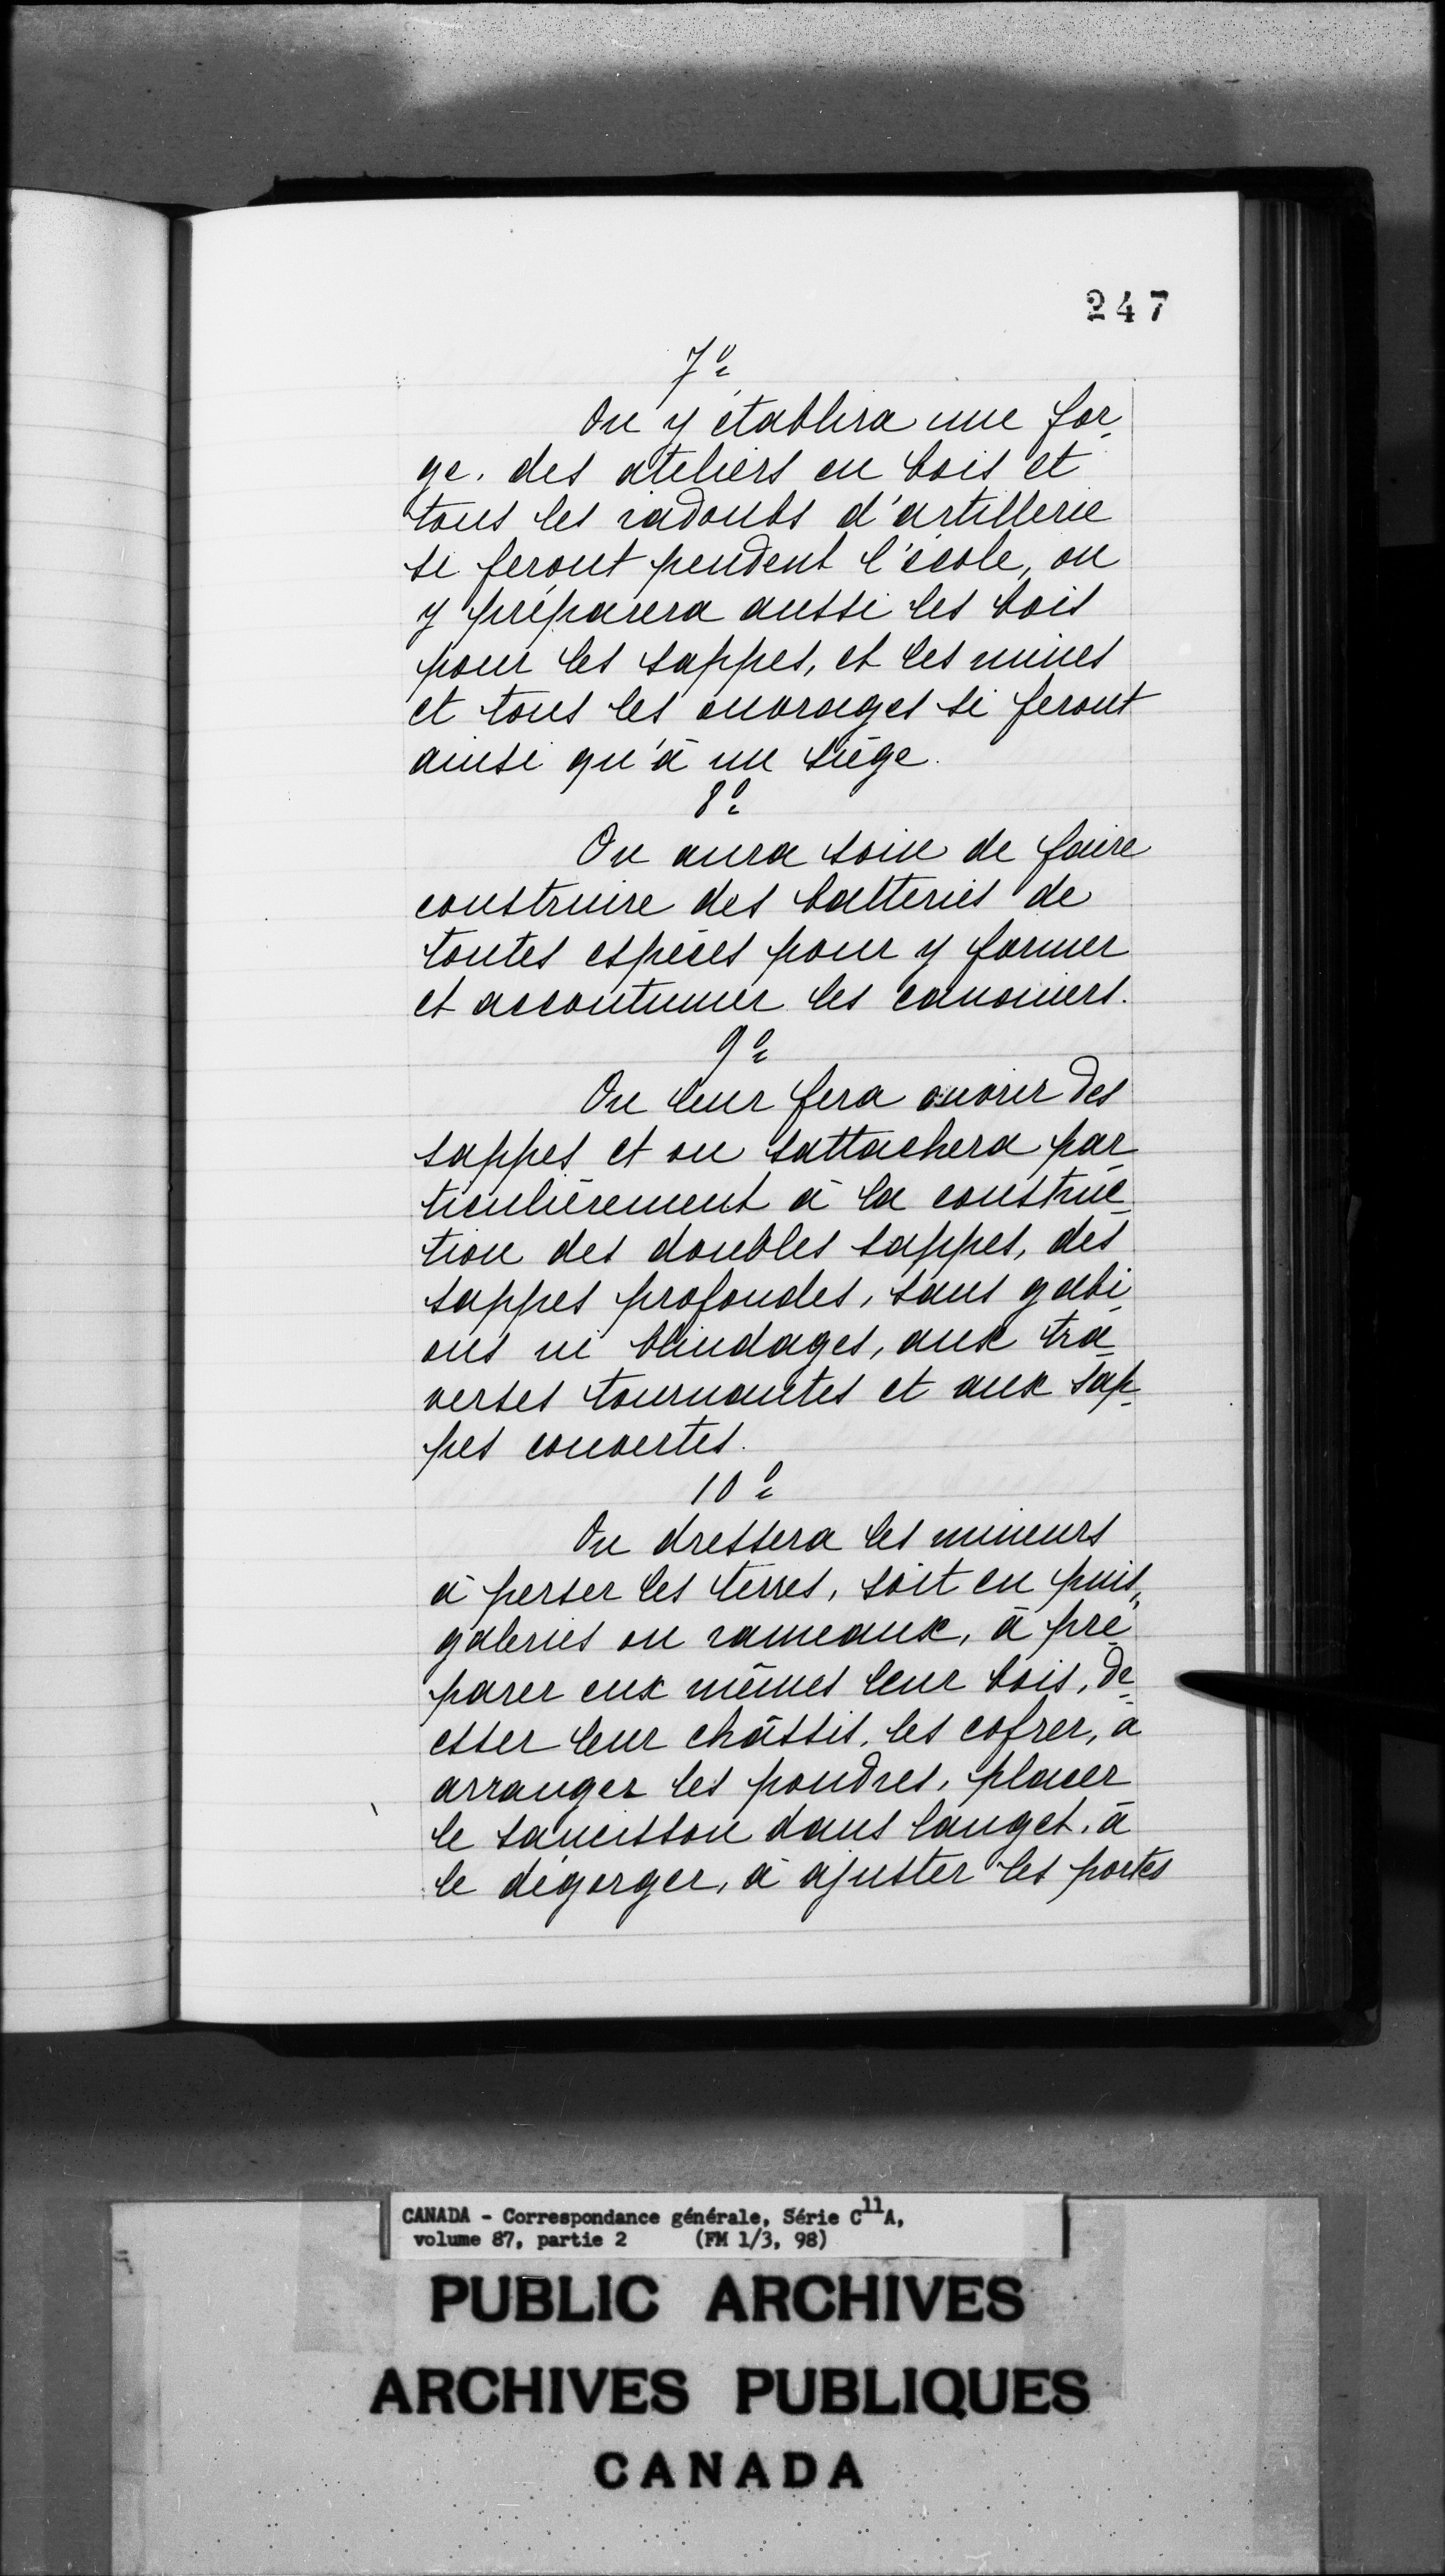 247
7º
On y établira une for-
ge. des ateliers en bois et
tous les radoubs d'artillerie
se feront pendent l'école, on
y préparera aussi les bois
pour les sappes, et les mines
et tous les ouvrages se feront
ainsi qu'à un siège.
8º
On aura soin de faire
construire des batteries de
toutes espèces pour y former
et accoutumer les canoniers.
9º
On leur fera ouvrir des
sappes et on sattachera par-
ticulièrement à la construc-
tion des doubles sappes, des
sappes profondes, sans gabi-
ons ni blindages, aux tra-
verses tournantes et aux sap-
pes couvertes.
10º
On dressera les mineurs
à perser les terres, soit en puis,
galeries ou rameaux, à pré-
parer eux mêmes leur bois, dr-
esser leur châssis, les cofrer, à
arranger les poudres, placer
le saucisson dans lauget, à
le dégorger, à ajuster les portes
CANADA - Correspondance générale, Série C11A,
volume 87, partie 2 (FM 1/3, 98)
PUBLIC ARCHIVES
ARCHIVES PUBLIQUES
CANADA